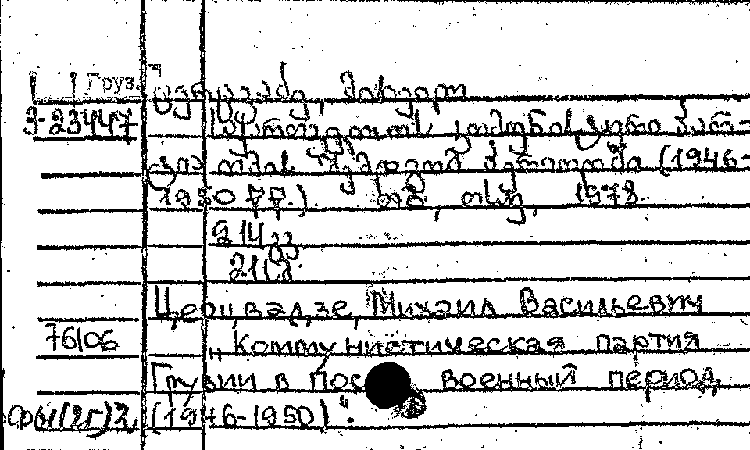 Груз.
ცერცვაძე, მიხეილ
3-23447
საქართველოს კომუნისტური პარ-
ტია ომის შემდგომ პერიოდში (1946-
1950 წწ.) თბ., თსუ, 1978.
214 გვ.
21 სმ.
Церцвадзе, Михаил Васильевич
76106
„Коммунистическая партия
Грузии в пос военный период
(1946-1950)".